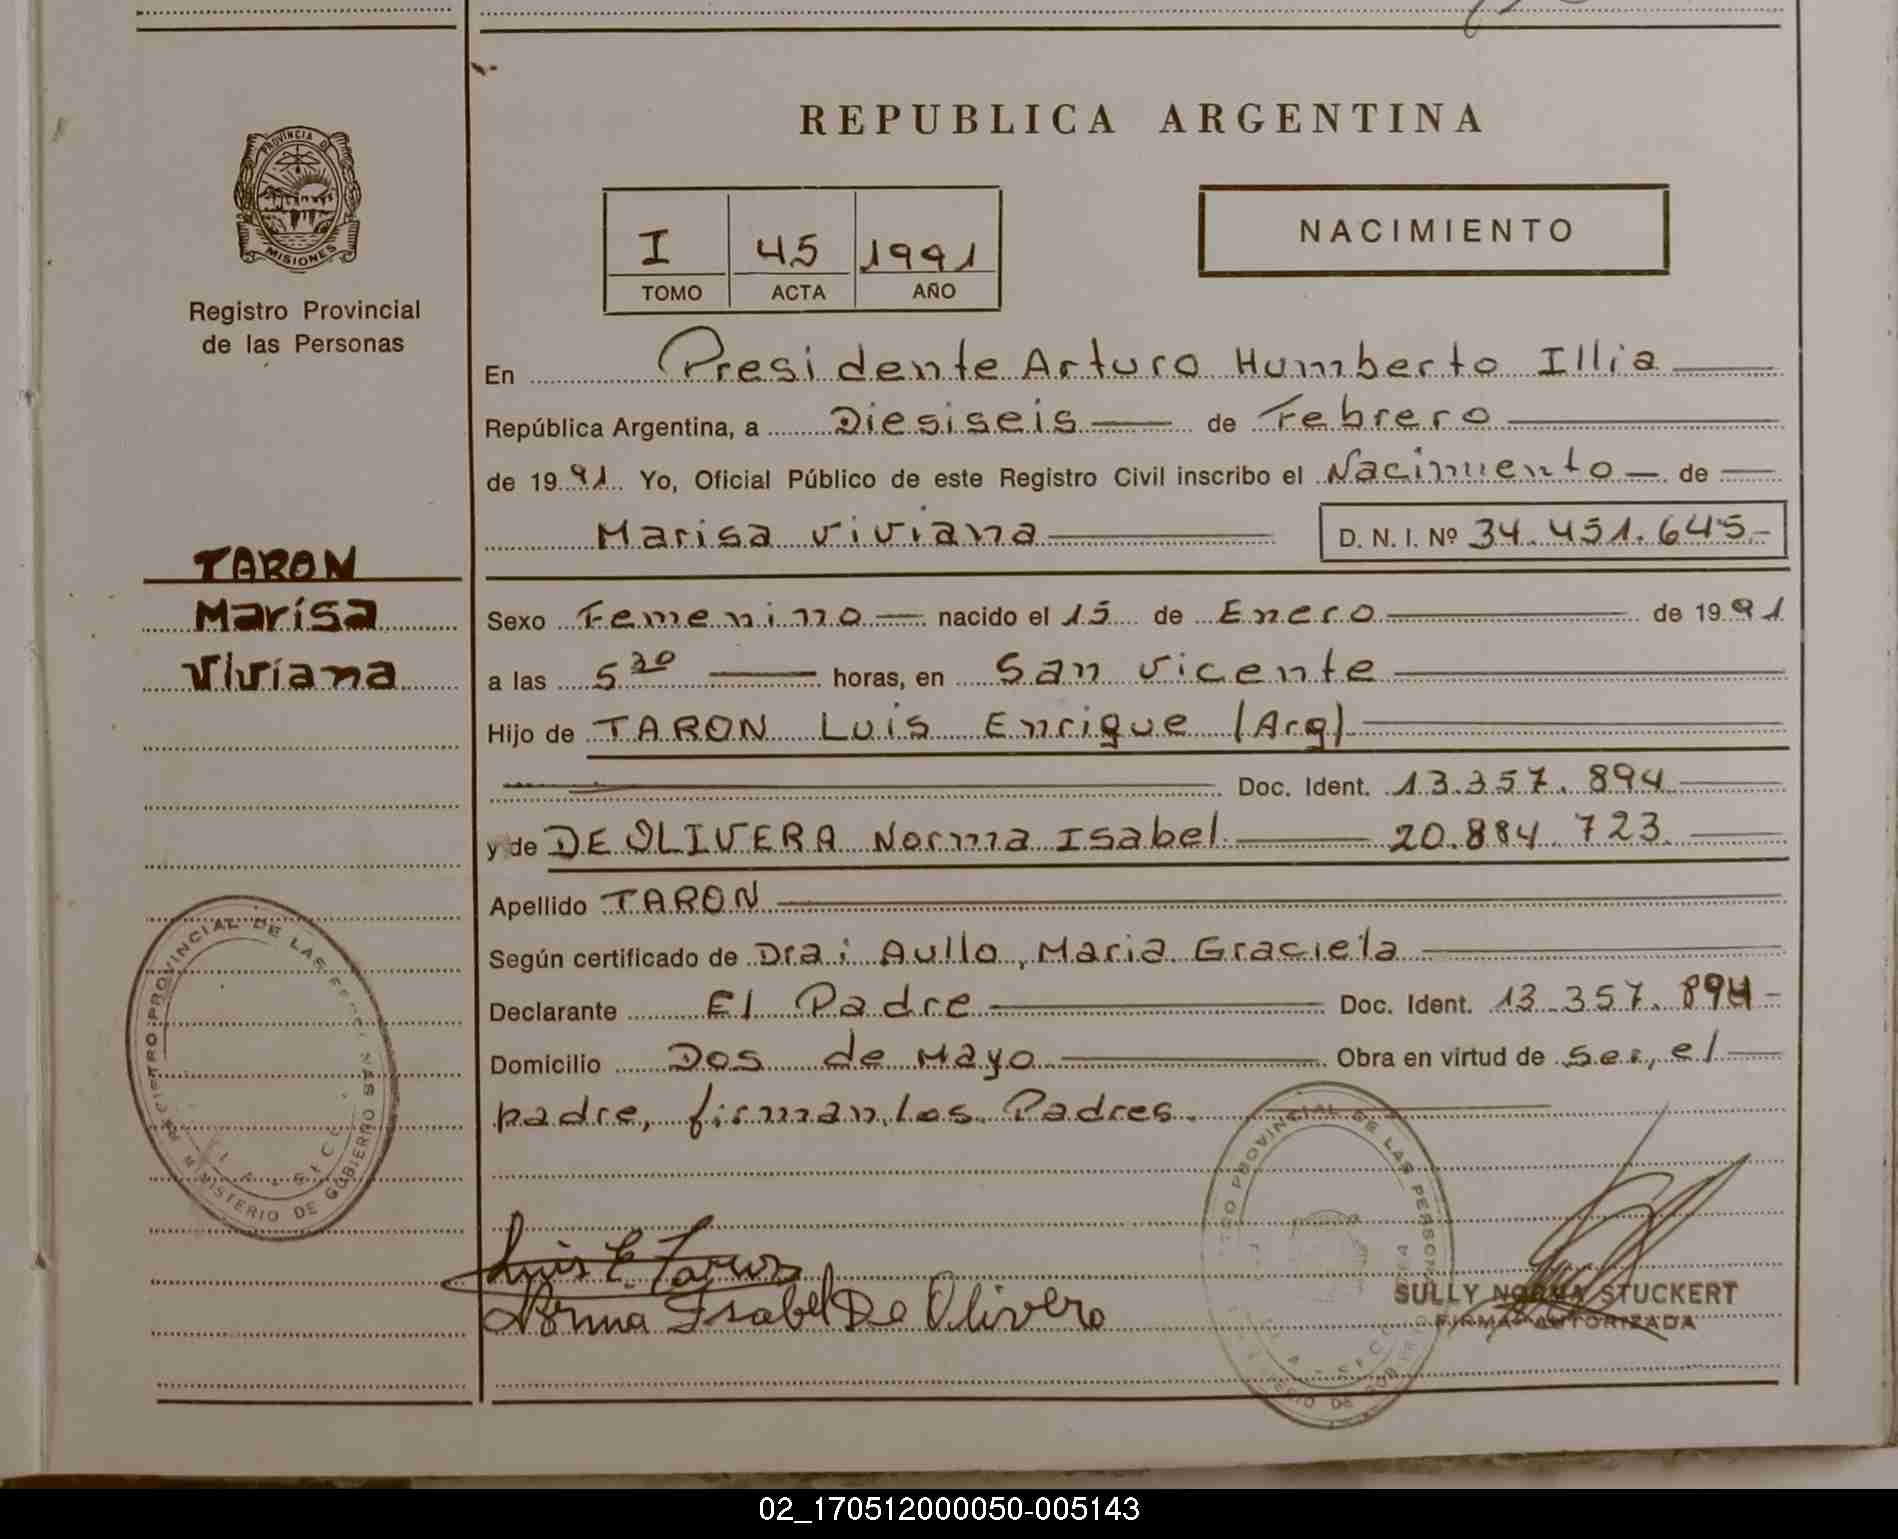 REPUBLICA ARGENTINA
PROVINCIA DE
MISIONES
Registro Provincial
de las Personas
I 45 1991
TOMO ACTA AÑO
NACIMIENTO
En Presidente Arturo Humberto Illia
República Argentina, a Diesiseis de Febrero
de 1991 Yo, Oficial Público de este Registro Civil inscribo el Nacimiento de
Marisa Viviana D. N. I. Nº 34.451.645-
TARON
Marísa
Viviana
Sexo Femenino nacido el 15 de Enero de 1991
a las 5 30 horas, en San Vicente
Hijo de TARON Luis Enrique (Arg)
Doc. Ident. 13.357.894
y de DE OLIVERA Norma Isabel 20.884.723
Apellido TARON
Según certificado de Dra: Aullo, Maria Graciela
Declarante El Padre Doc. Ident. 13.357.894-
Domicilio Dos de Mayo Obra en virtud de Ser, el
padre, firman los Padres.
REGISTRO PROVINCIAL DE LAS
MINISTERIO DE GOBIERNO
PROVINCIAL DE LAS PERSONAS
Luis E. Taron
Norma Isabel De Olivera
SULLY NORMA STUCKERT
FIRMA AUTORIZADA
02_170512000050-005143